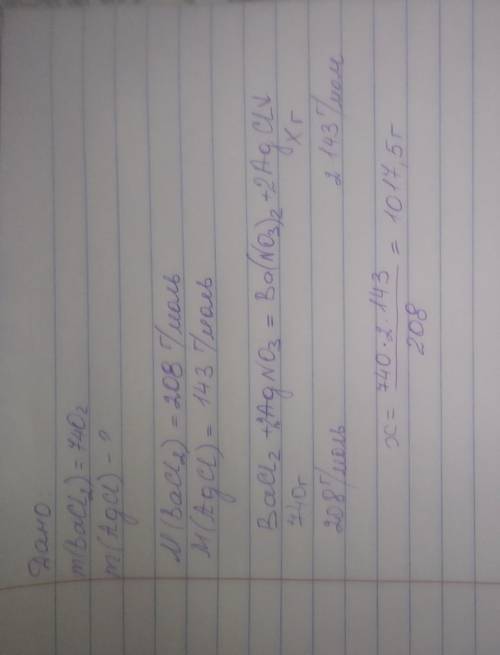 Дано
m(BaCl₂) = 740г
m(AgCl) - ?
M(BaCl₂) = 208 г/моль
M(AgCl) = 143 г/моль
BaCl₂ + 2AgNO₃ = Ba(NO₃)₂ + 2AgCl↓
740г xг
208 г/моль 2 143 г/мол
x = 740·2·143 / 208 = 1017,5г